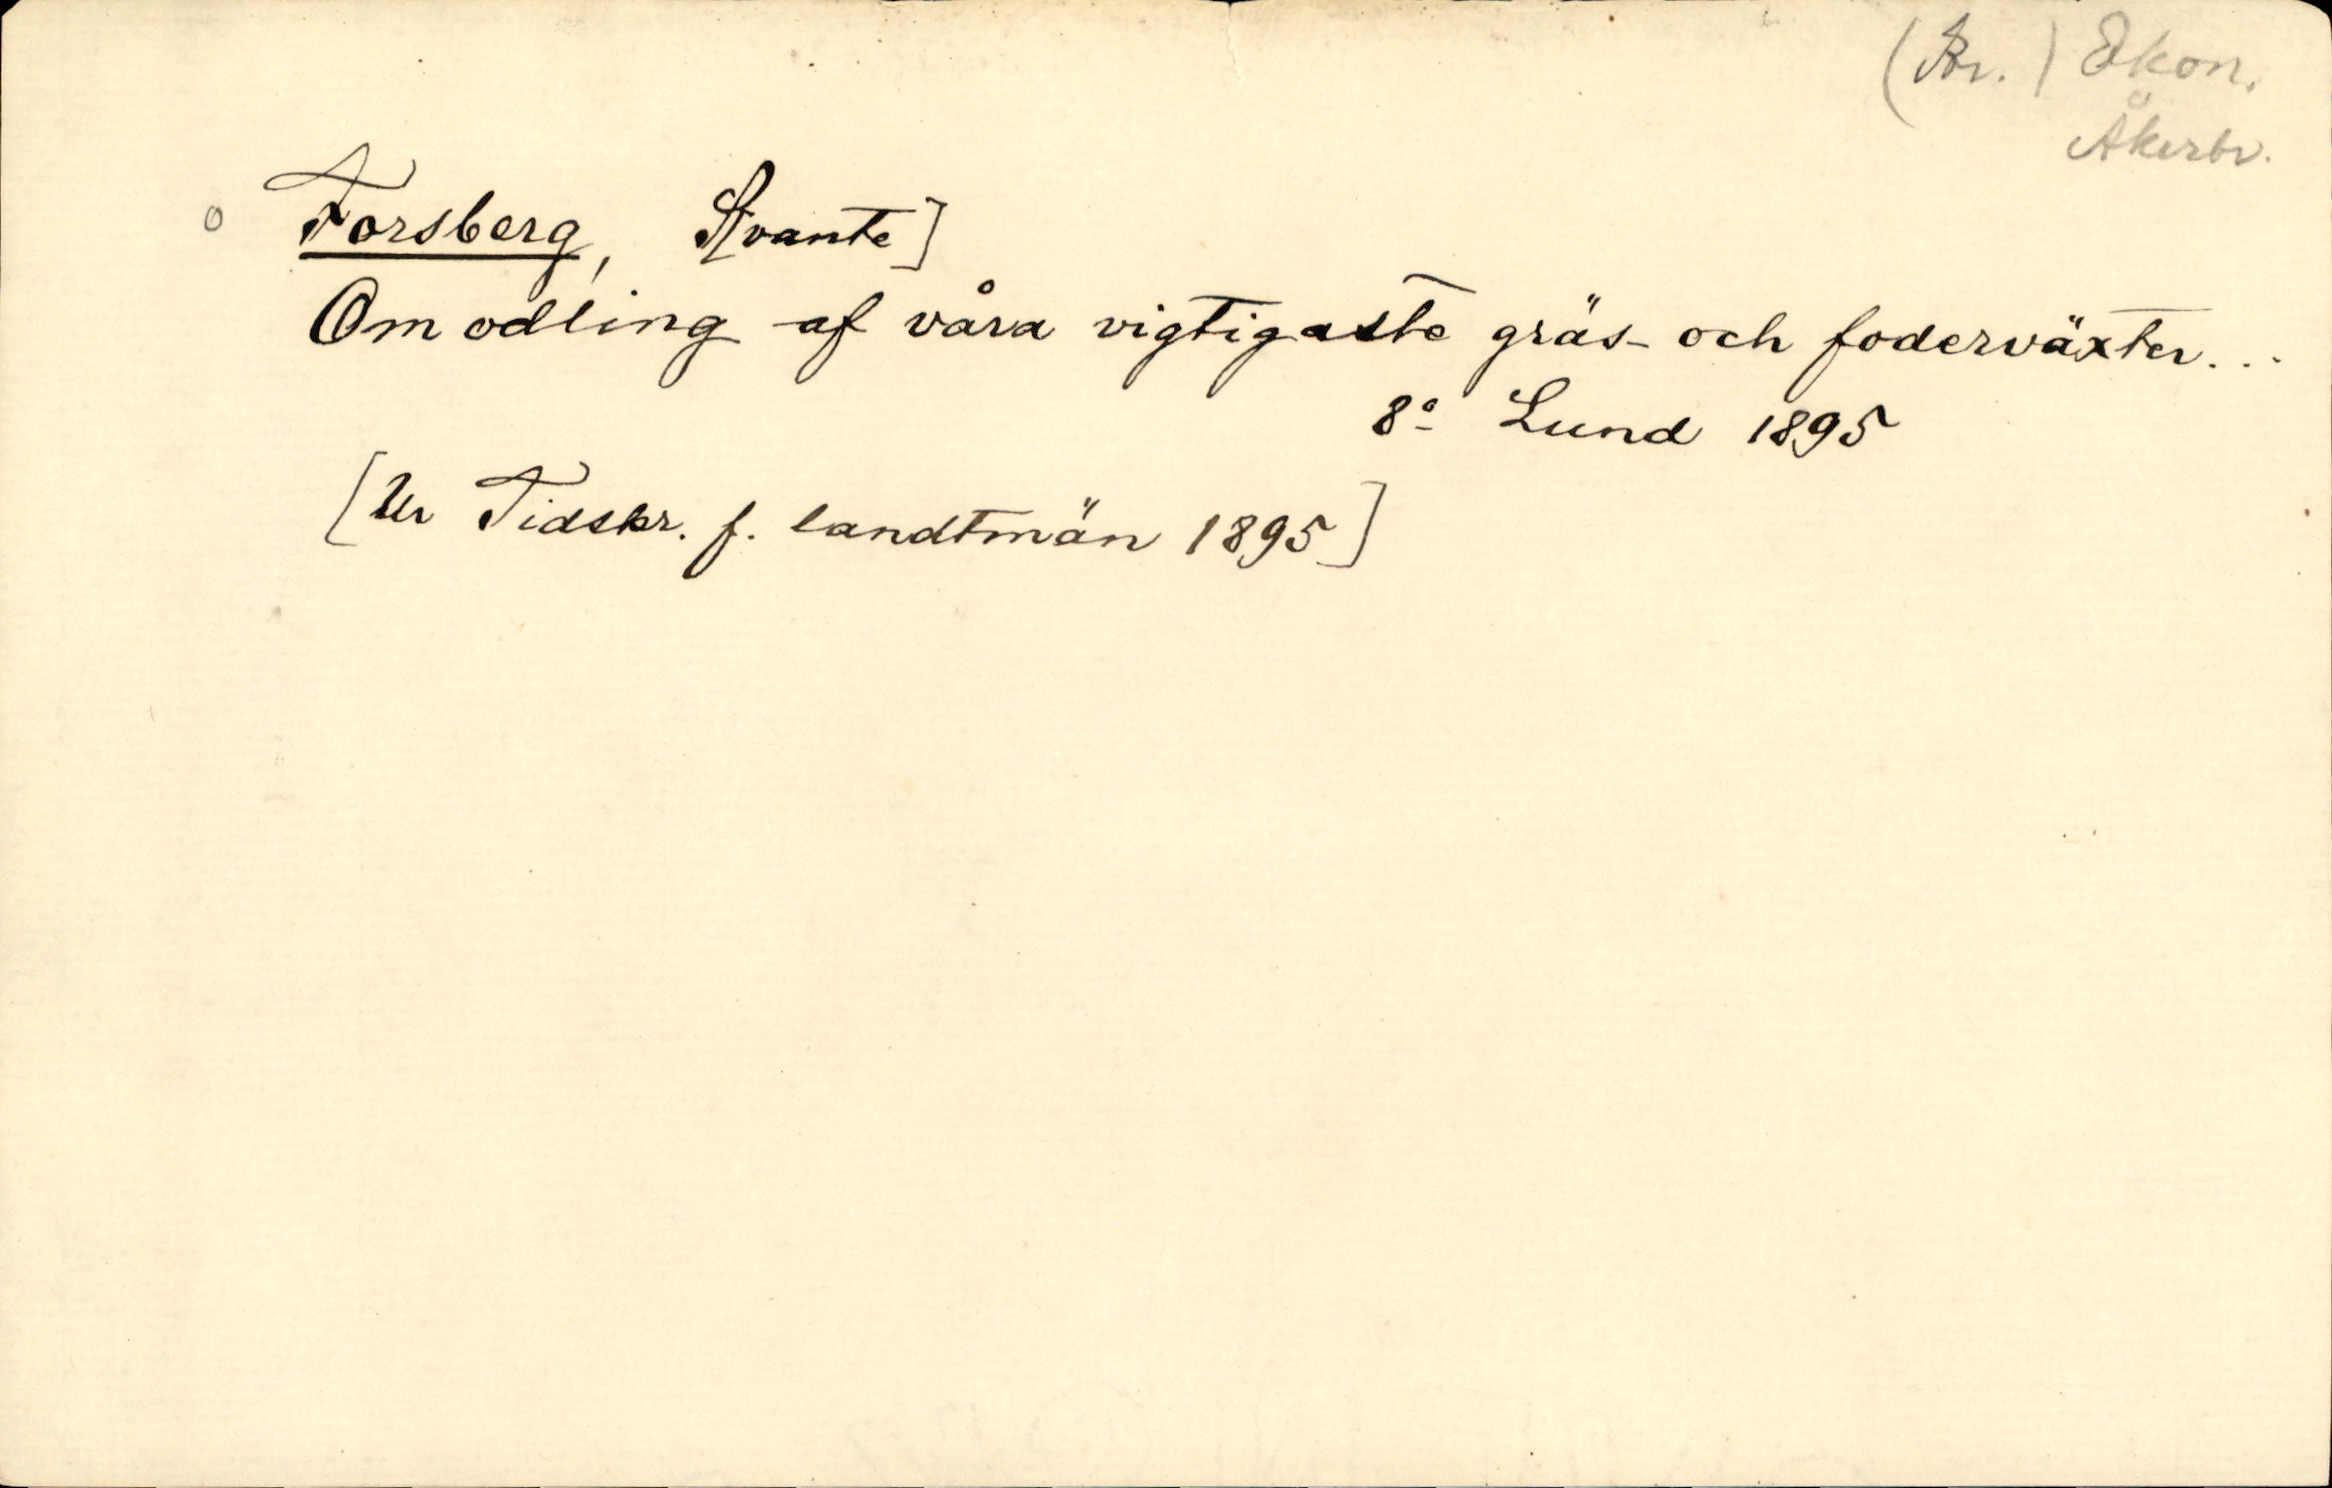 (Br.) Ekon.
Åkerbr.
o Forsberg, S[vante]
Om odling af våra vigtigaste gräs- och foderväxter...
8:o Lund 1895
[Ur Tidskr. f. landtmän 1895]